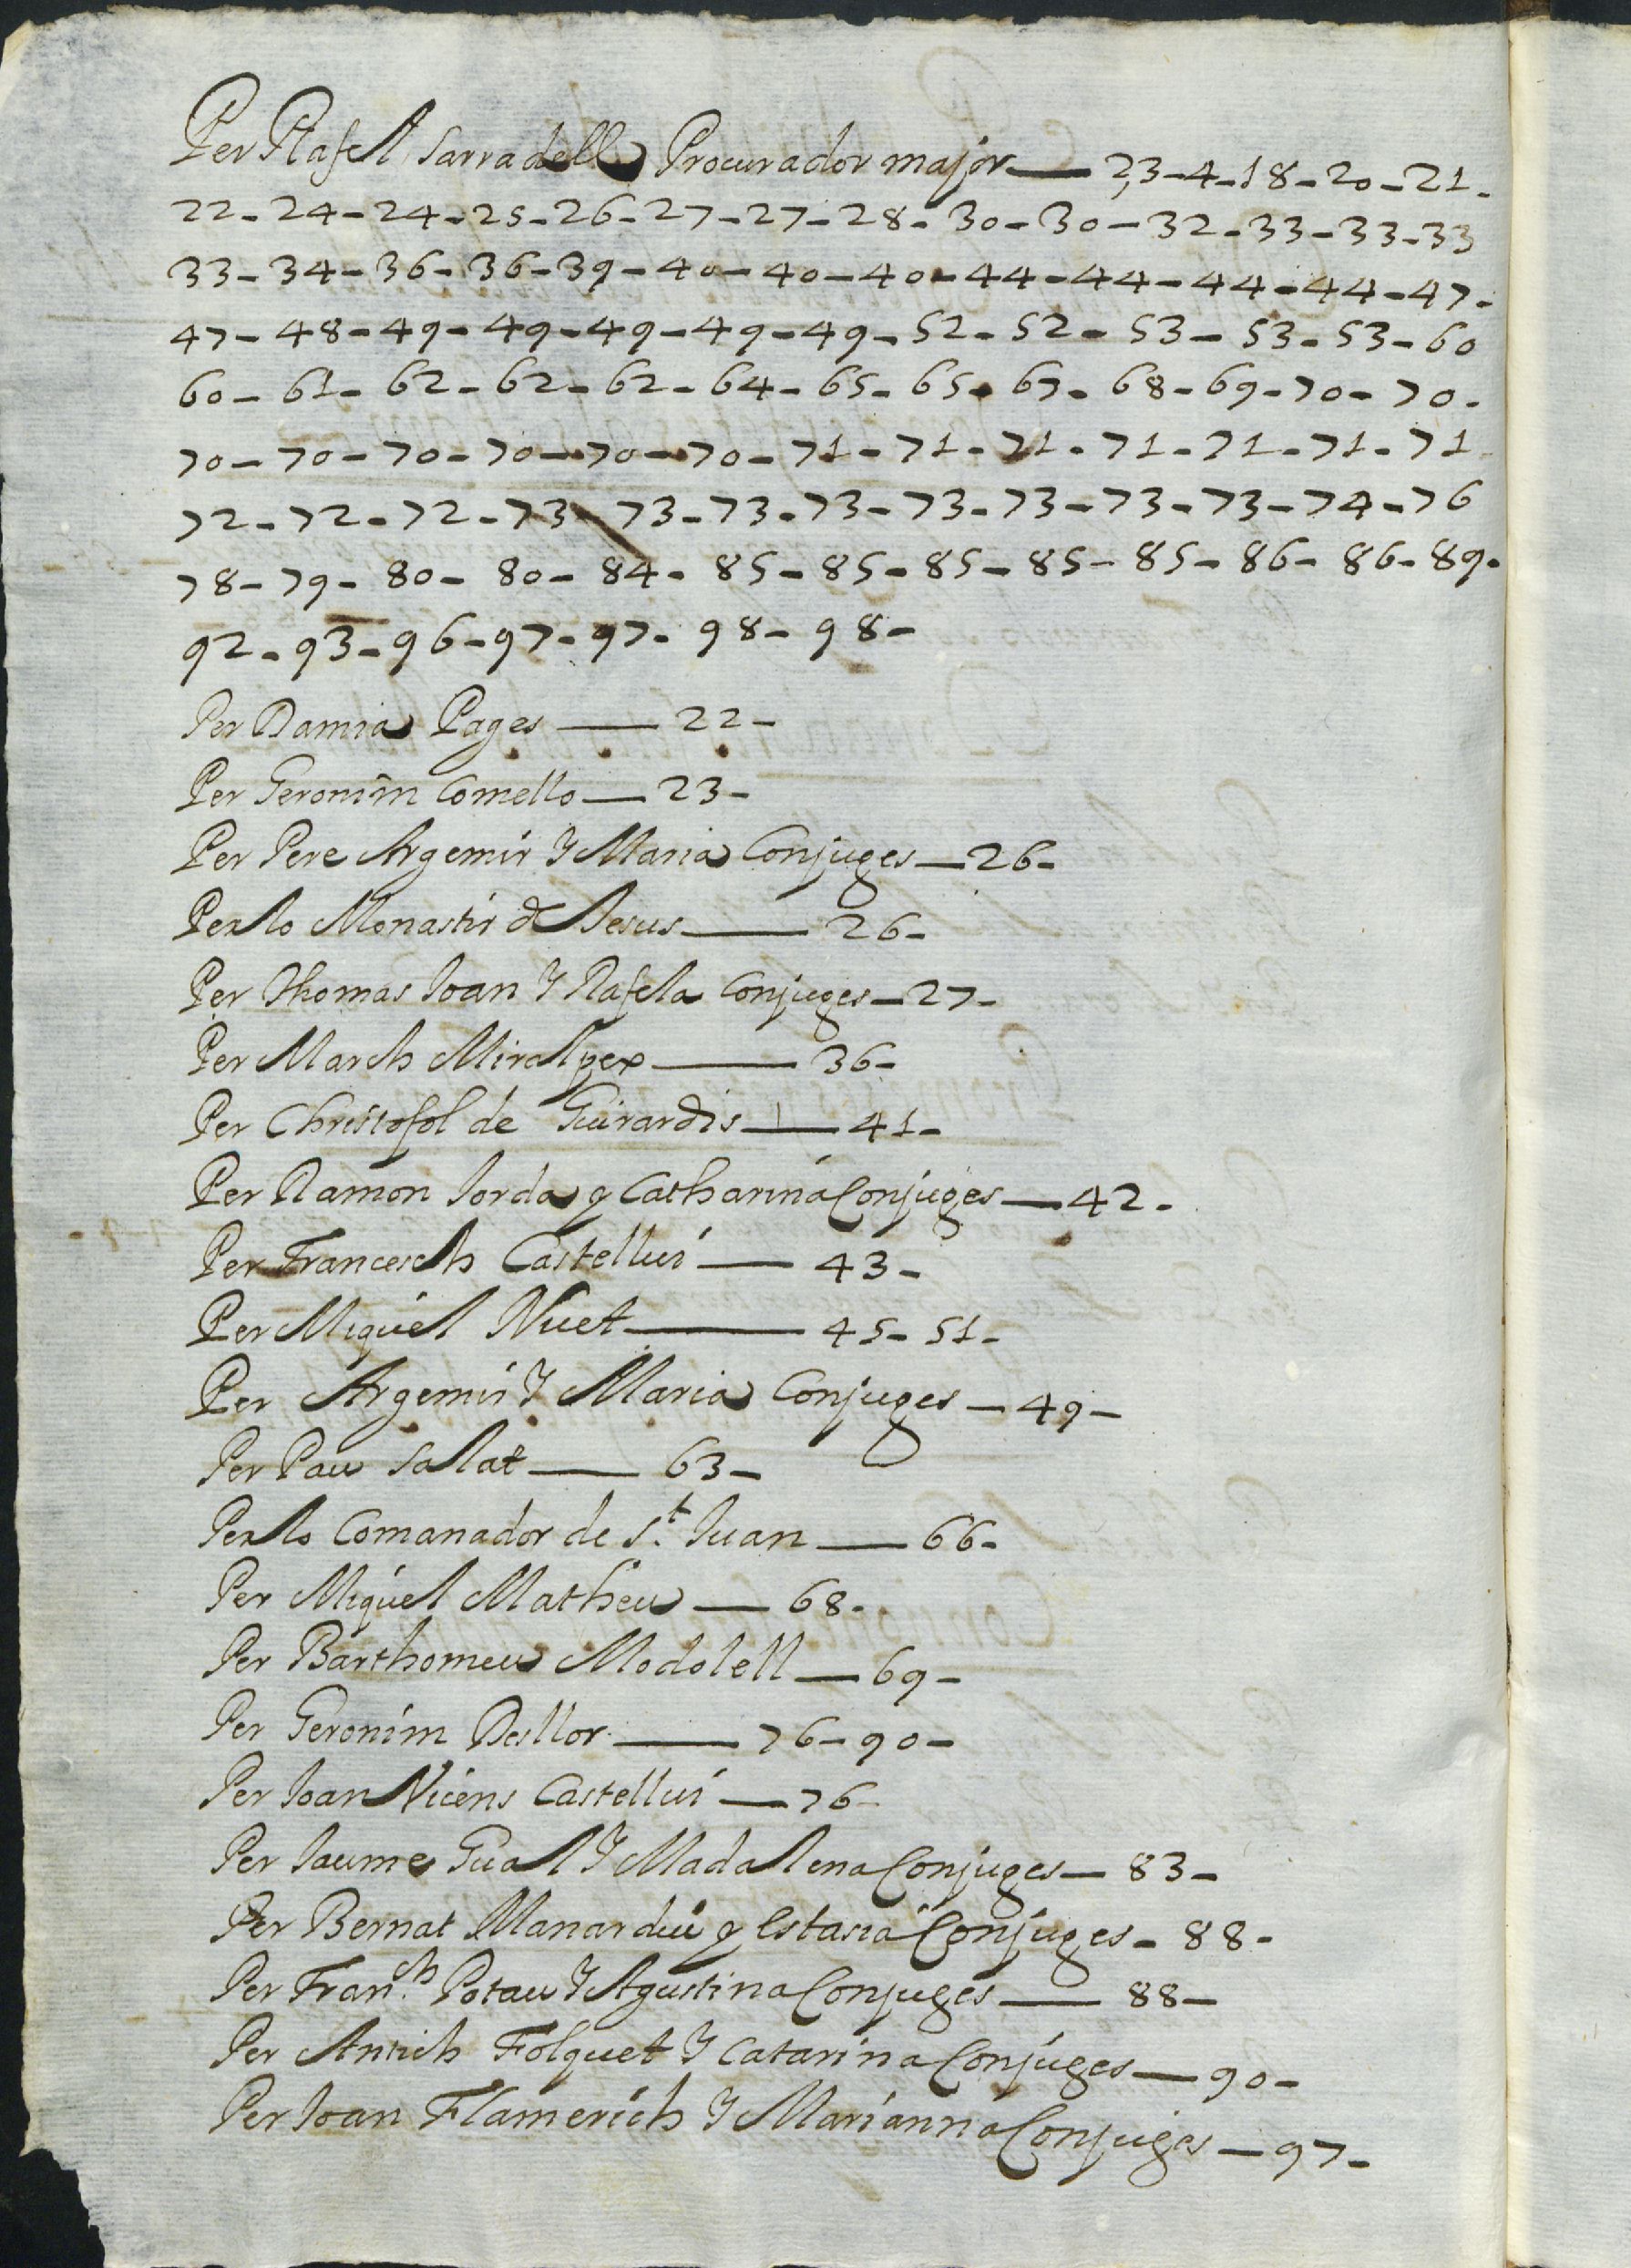 Per Rafel Sarradell Procurador major — 2,3-4-18-20-21-
22-24-24-25-26-27-27-28-30-30-32-33-33-33
33-34-36-36-39-40-40-40-44-44-44-44-47-
47-48-49-49-49-49-49-52-52-53-53-53-60
60-61-62-62-62-64-65-65-67-68-69-70-70-
70-70-70-70-70-70-71-71-71-71-71-71-71
72-72-72-73-73-73-73-73-73-73-73-74-76
78-79-80-80-84-85-85-85-85-85-86-86-89-
92-93-96-97-97-98-98-
Per Damia Pages — 22-
Per Geronim Comello — 23-
Per Pere Argemir Y Maria Conjuges — 26-
Per lo Monastir de Jesus — 26-
Per Thomas Joan Y Rafela Conjuges — 27-
Per March Miralpex — 36-
Per Christofol de Guirardis — 41-
Per Ramon Jorda y Catharina Conjuges — 42-
Per Francesch Castellui — 43-
Per Miquel Nuet — 45-51-
Per Argemir Y Maria Conjuges — 49-
Per Pau Salat — 63-
Per lo Comanador de S.t Juan — 66-
Per Miquel Matheu — 68-
Per Barthomeu Modolell — 69-
Per Geronim Desllor — 76-90-
Per Joan Vicens Castellui — 76-
Per Jaume Gual Y Madalena Conjuges — 83-
Per Bernat Manardiu y Estasia Conjuges - 88-
Per Fran.ch Potau Y Agustina Conjuges — 88-
Per Antich Folquet Y Catarina Conjuges — 90-
Per Joan Flamerich Y Marianna Conjuges — 97-